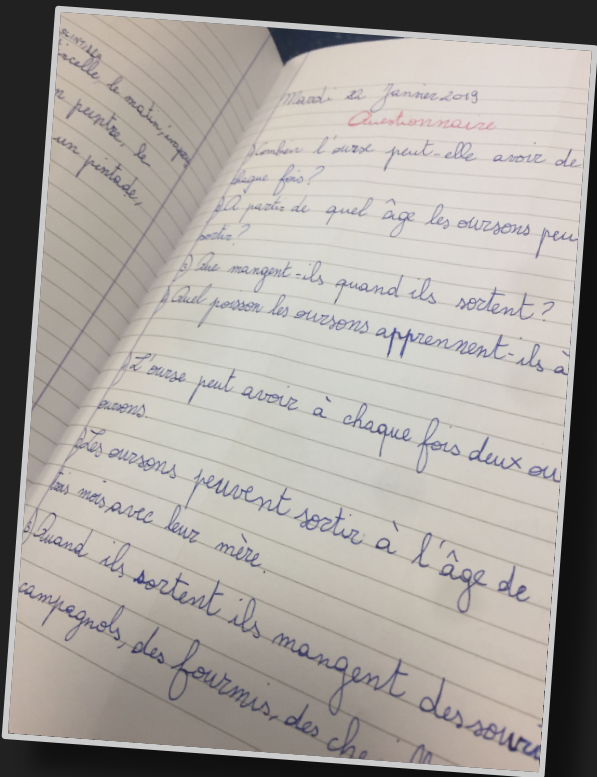 ncelle, le matin,
n peintre, le
un pintade,
Mardi 22 Janvier 2019
Questionnaire
1) Combien l'ourse peut-elle avoir de
chaque fois ?
2) A partir de quel âge les oursons peu
sortir ?
3) Que mangent-ils quand ils sortent ?
4) Quel poisson les oursons apprennent-ils à
1) L'ourse peut avoir à chaque fois deux ou
oursons.
2) Les oursons peuvent sortir à l'âge de
trois mois, avec leur mère.
3) Quand ils sortent ils mangent des souri
campagnols, des fourmis, des che